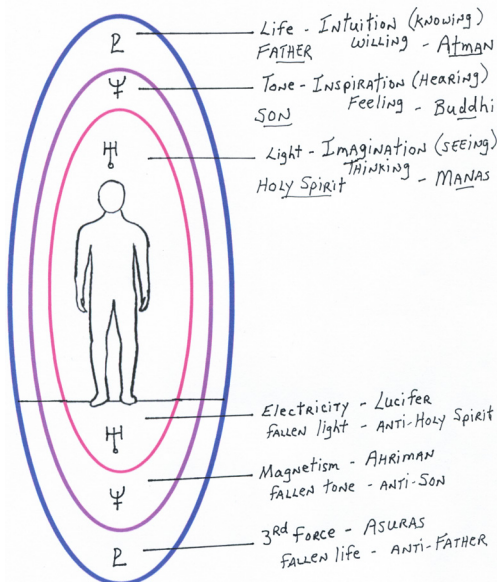 Life - Intuition (Knowing)
Willing - Atman
FATHER
Tone - Inspiration (Hearing)
Feeling - Buddhi
SON
Light - Imagination (Seeing)
Thinking
Holy Spirit - Manas
Electricity - Lucifer
Fallen light - Anti-Holy Spirit
Magnetism - Ahriman
Fallen tone - Anti-Son
3rd Force - Asuras
Fallen life - Anti-Father